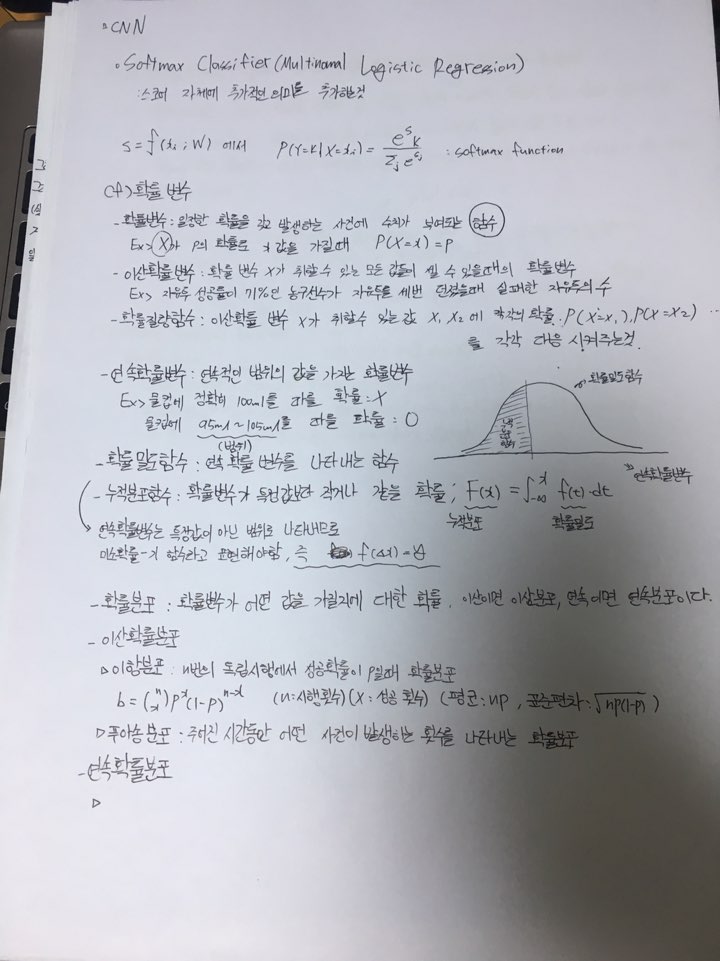 ▫ CNN
∘ Softmax Classifier (Multinomal Logistic Regression)
: 스코어 자체에 추가적인 의미를 추가하는것
s = f(xᵢ ; W) 에서 P(Y=k | X=xᵢ) = e^s k / Σⱼ e^sⱼ : softmax function
(cf) 확률 변수
- 확률변수 : 일정한 확률을 갖고 발생하는 사건에 수치가 부여되는 함수
Ex> X가 P의 확률로 x 값을 가질때 P(X=x) = p
- 이산확률변수 : 확률 변수 X가 취할 수 있는 모든 값들이 셀 수 있을때의 확률변수
Ex> 자유투 성공률이 71%인 농구선수가 자유투를 세번 던졌을때 실패한 자유투의 수
- 확률질량함수 : 이산확률 변수 X가 취할수 있는 값 X₁, X₂ 에 각각의 확률 P(X=x₁), P(X=X₂) ...
를 각각 대응 시켜주는것.
- 연속확률변수 : 연속적인 범위의 값을 가지는 확률변수
Ex> 물컵에 정확히 100ml를 따를 확률 : X
물컵에 95ml ~ 105ml를 따를 확률 : O
(범위)
확률밀도함수
- 확률 밀도함수 : 연속 확률 변수를 나타내는 함수
연속확률변수
- 누적분포함수 : 확률변수가 특정값보다 작거나 같을 확률 ; F(x) = ∫₋∞ˣ f(t)·dt
누적분포 확률밀도
연속확률변수는 특정값이 아닌 범위로 나타내므로
함수라고 표현해야함, 즉 f(Δx) =
- 확률분포 : 확률변수가 어떤 값을 가질지에 대한 확률. 이산이면 이산분포, 연속이면 연속분포이다.
- 이산확률분포
▷ 이항분포 : n번의 독립시행에서 성공확률이 p일때 확률분포
b = (n x) p^x (1-p)^n-x (n : 시행횟수) (X : 성공 횟수) (평균 : np, 표준편차 : √np(1-p) )
▷ 푸아송 분포 : 주어진 시간동안 어떤 사건이 발생하는 횟수를 나타내는 확률분포
- 연속확률분포
▷